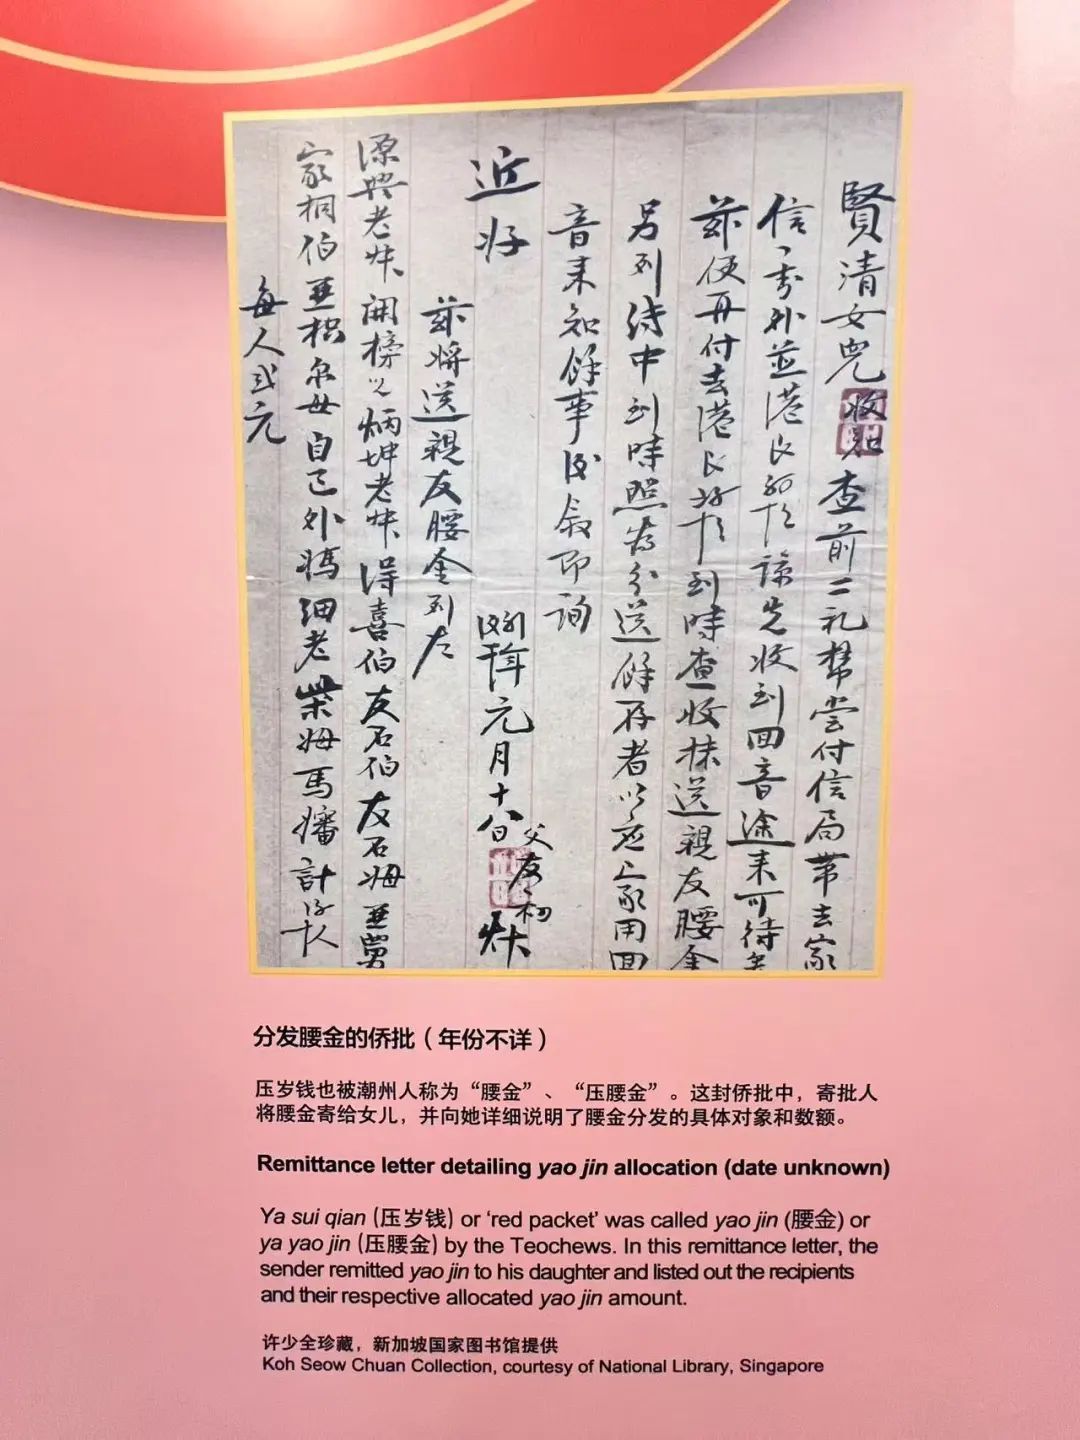 賢清女兒收知查前二礼幫尝付信局带去家
信一封外並港艮 諒先收到回音途来可待
兹便再付去港艮 到時查收抹送親友腰金
另列待中到時照为分送餘存者以应上家用回
音来知餘事後叙即詢
近好
元月十八日父友初
兹将送親友腰金列左
源興老 開榜 炳坤老 得喜伯友石伯友石姆亚舅
家桐伯亚 自己外媽细老 姆馬嬸計 人
每人弍元
分发腰金的侨批（年份不详）
压岁钱也被潮州人称为“腰金”、“压腰金”。这封侨批中，寄批人
将腰金寄给女儿，并向她详细说明了腰金分发的具体对象和数额。
Remittance letter detailing yao jin allocation (date unknown)
Ya sui qian (压岁钱) or ‘red packet’ was called yao jin (腰金) or
ya yao jin (压腰金) by the Teochews. In this remittance letter, the
sender remitted yao jin to his daughter and listed out the recipients
and their respective allocated yao jin amount.
许少全珍藏，新加坡国家图书馆提供
Koh Seow Chuan Collection, courtesy of National Library, Singapore